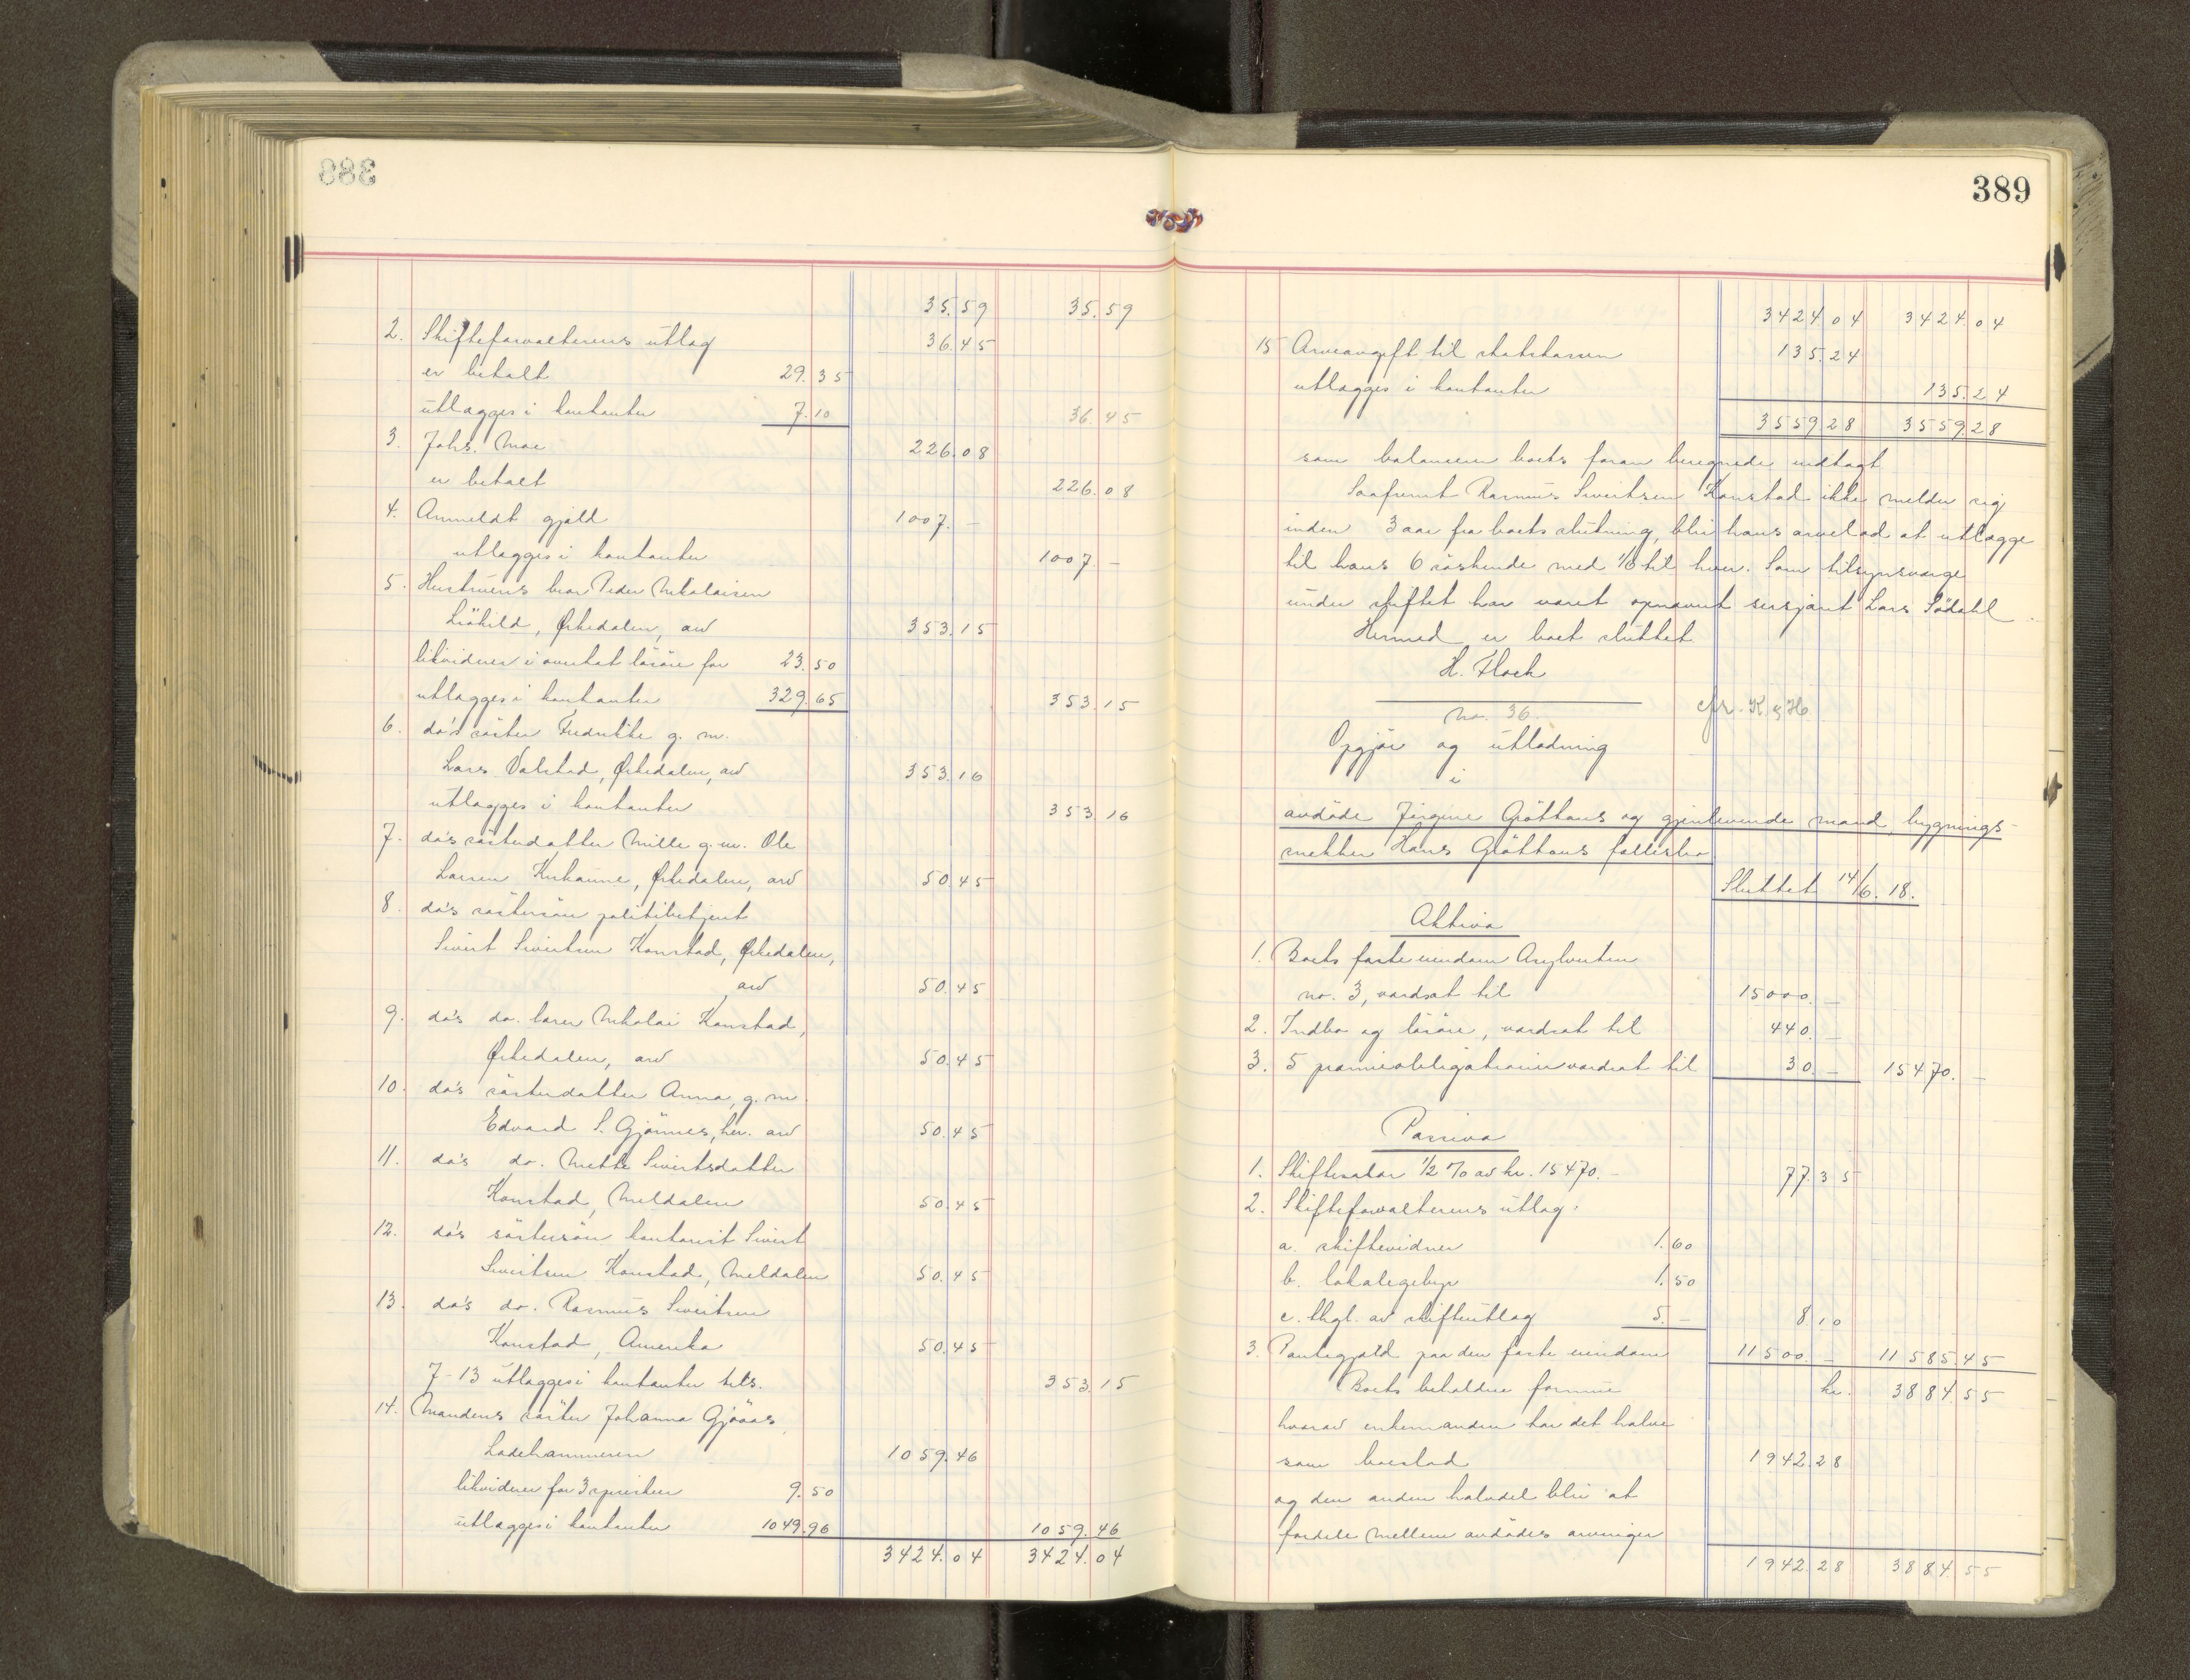 35.59 35.59
2. Skifteforvalterens utlæg 36.45
er betalt 29.35
utlægges i kontanter 7.10 36.45
3. Johs. Moe 226.08
er betalt 226.08
4. Anmeldt gjæld 1007.-
utlægges i kontanter 1007.-
5. Hustruens bror Peder Nikolaisen
Lökild, Örkedalen, arv 353.15
likviderer i overtat lösöre for 23.50
utlægges i kontanter 329.65 353.15
6. do's söster Fredrikke g. m.
Lars Valstad, Örkedalen, arv 353.16
utlægges i kontanter 353.16
7. do's sösterdatter Mille g. m. Ole
Larsen Kukaune, Örkedalen, arv 50.45
8. do's söstersön politibetjent
Sivert Sivertsen Konstad, Örkedalen,
arv 50.45
9. do's do. lærer Nikolai Konstad,
Örkedalen, arv 50.45
10. do's sösterdatter Anna, g. m.
Edvard S. Gjönnes, her. arv 50.45
11. do's do. Mette Sivertsdatter
Konstad, Meldalen 50.45
12. do's söstersön kontorist Sivert
Sivertsen Konstad, Meldalen 50.45
13. do's do. Rasmus Sivertsen
Konstad, Amerika 50.45
7-13 utlægges i kontanter tils. 353.15
14. Mandens söster Johanna Gjöaas,
Ladehammeren 1059.46
likviderer for 3 9.50
utlægges i kontanter 1049.96 1059.46
3424.04 3424.04
389
3424.04 3424.04
15 Arveavgift til statskassen 135.24
utlægges i kontanter 135.24
3559.28 3559.28
som balanserer boets foran beregnede indtægt
Saafremt Rasmus Sivertsen Konstad ikke melder sig
inden 3 aar fra boets slutning, blir hans arvelod at utlægge
til hans 6 söskende med 1/6 til hver. Som tilsynsværge
under skiftet har været opnævnt sersjant Lars Södahl.
Hermed er boet sluttet
H. Floch
no. 36. cfr. K & H
Opgjör og utlodning
i
avdöde Jörgine Gröttaus og gjenlevende mand, bygnings-
snekker Hans Gröttaus fællesbo
Sluttet 14/6. 18.
Aktiva
1. Boets faste eiendom Asylveiten
no. 3, værdsat til 15000.-
2. Indbo og lösöre, værdsat til 440.-
3. 5 præmieobligationer værdsat til 30.- 15470.-
Passiva
1. Skiftesalær 1/2 % av kr. 15470.- 77.35
2. Skifteforvalterens utlæg:
a. skiftevidner 1.60
b. lokalegebyr 1.50
c. Thgl. av skifteutlæg 5.- 8.10
3. Pantegjæld paa den faste eiendom 11500.- 11585.45
Boets beholdne formue kr. 3884.55
hvorav enkemanden har det halve
som boeslod 1942.28
og den anden halvdel blir at
fordele mellem avdödes arvinger
1942.28 3884.55